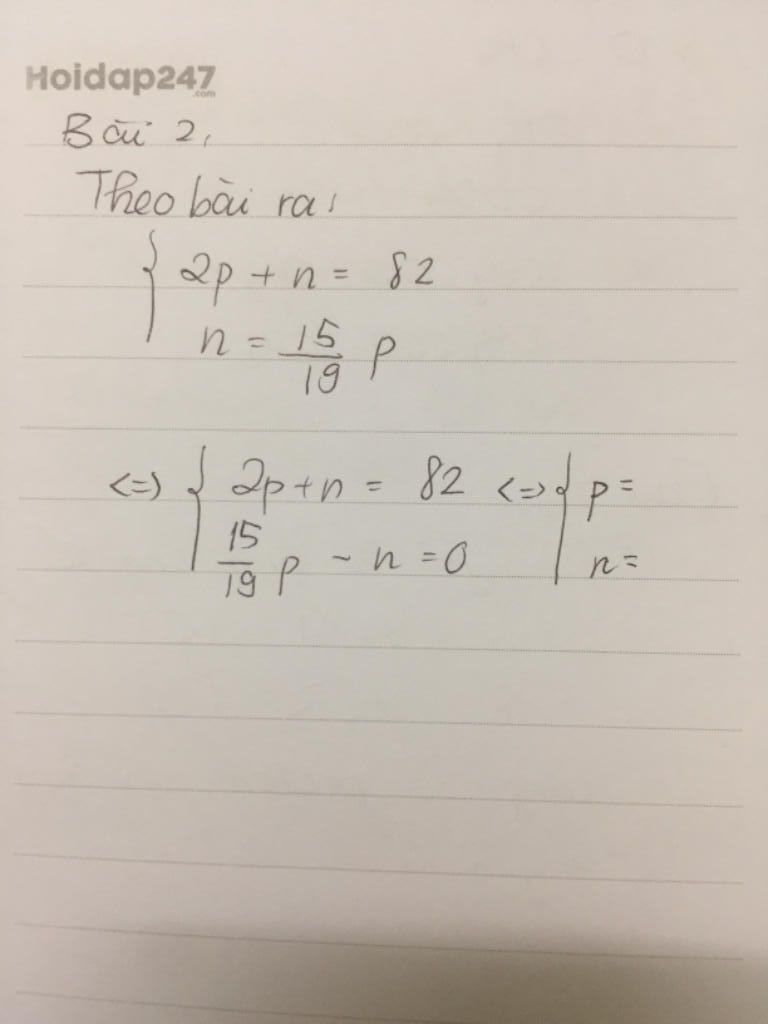 Hoidap247
.com
Bài 2,
Theo bài ra:
{ 2p + n = 82
n = 15/19 p
<=> { 2p + n = 82 <=> { p =
15/19 p - n = 0 n =